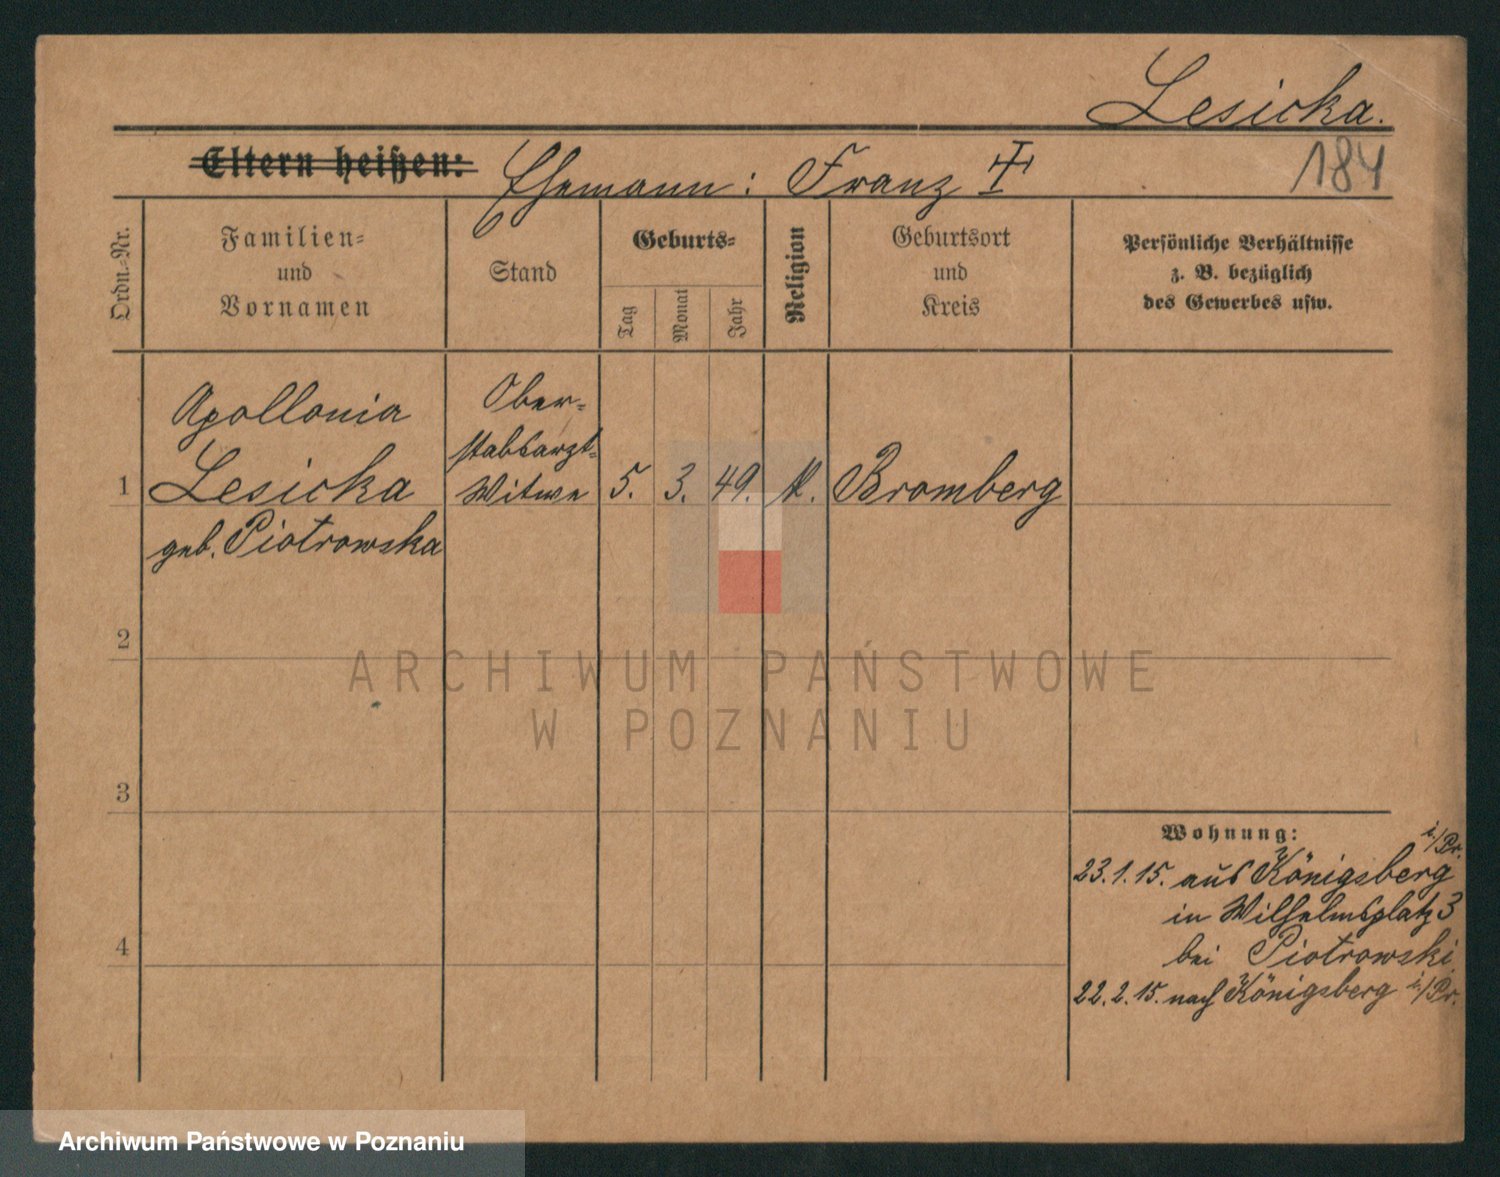 Lesicka.
Eltern heißen: Ehemann: Franz
184
Ordn.-Nr.
Familien-
und
Vornamen
Stand
Geburts-
Tag
Monat
Jahr
Religion
Geburtsort
und
Kreis
Persönliche Verhältnisse
z. B. bezüglich
des Gewerbes usw.
Apollonia
Ober-
stabsarzt-
1 Lesicka Witwe 5. 3. 49. k. Bromberg
geb. Piotrowska
2
ARCHIWUM PAŃSTWOWE
W POZNANIU
3
Wohnung:
i./Pr.
23.1.15. aus Königsberg
in Wilhelmsplatz 3
bei Piotrowski
4
22.2.15. nach Königsberg i./Pr.
Archiwum Państwowe w Poznaniu